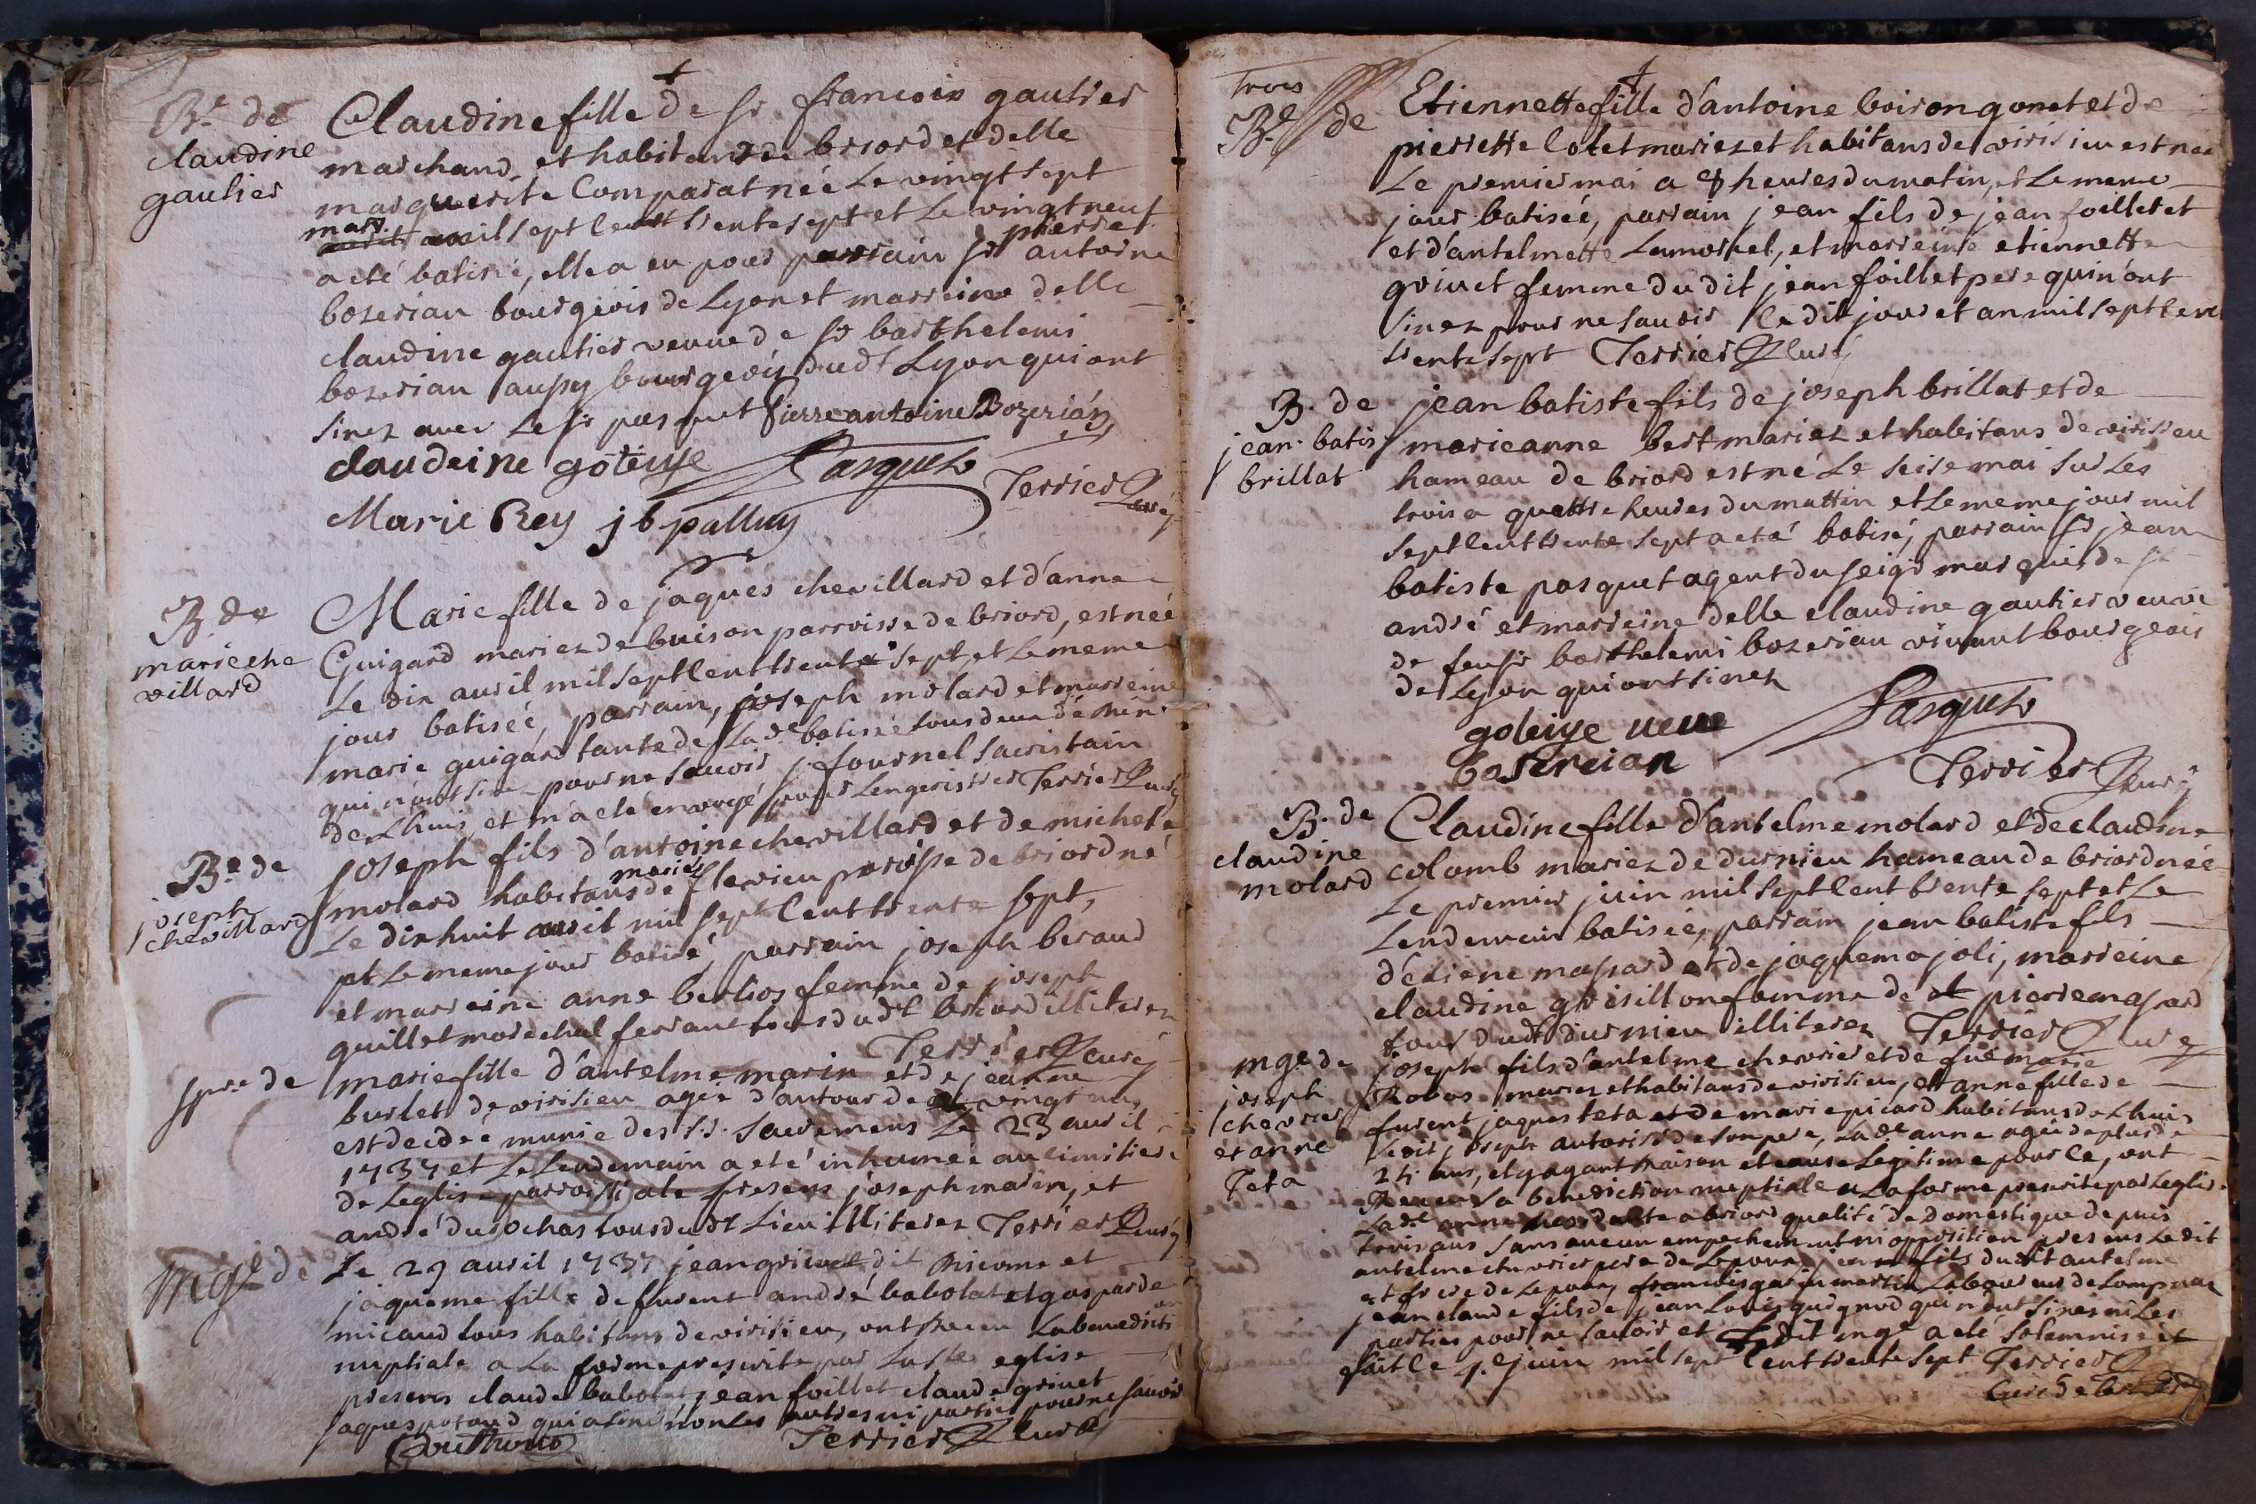 Be. de
claudine
gautier
Claudine fille de sr francois gautier
marchand et habitant de briord et delle
marguerite Comparat née Le vingt sept
mars
avril mil sept cent trente sept et Le vingt neuf
pierre
a eté batisée, elle a eu pour parrain sr antoine
bozerian bourgeois de Lyon et marreine delle
claudine gautier veuve de sr barthelemi
bozerian aussy bourgeois dudt Lyon qui ont
sinez avec Le sr pasquet Pierre antoine Bozerián
claudeine goteiye Pasquet
Marie Rey j b palluy Terrier Curé
B. de
marie che
villard
Marie fille de jaques chevillard et d'anne
Guigard mariez de buison parroisse de briord, est née
Le dix avril mil sept cent trente sept, et Le meme
jour batiseé, parrain, joseph molard et marreine
marie guigard tante de La de batisée tous deux de
qui n'ont sinez pour ne scavoir j. fournel sacristain
de Lhuis et m'a eté envoyé pour L'engeristrer Terrier Curé
Be. de
joseph
chevillard
joseph fils d'antoine chevillard et de michele
mariés
molard habitans de flevieu paroisse de briord né
Le dixhuit avril mil sept cent trente sept,
et Le meme jour batisé, parrain joseph beraud
et marreine anne berlios femme de joseph
quillet marechal ferrant tous dudt briord illiterez
Terrier Curé
spre de
marie fille d'antelme marin et de jeanne
burlet de virisieu ageé d'autour de vingt ans
est decedeé munie des s.s. sacremens Le 23 avril
1737 et Le Lendemain a eté inhumeé au cimitiere
de L'eglise parroissiale presens joseph marin, et
andré durochas tous dudt Lieu illiterez Terrier Curé
mge de
Le 29 avril 1737 jean grivet dit et
jaqueme fille de furent andré babolat et gasparde
micaud tous habitans de virisieu, ont receu La benediction
nuptiale a La forme prescrite par eglise
presens claude babolat jean foillet claude grivet
jaques potaud qui a siné non Les autres ni parties pour ne savoir
Terrier Curé
trois
Be de
Etiennette fille d'antoine boiron gonet et de
pierrette lotet mariez et habitans de virisieu est née
Le premier mai a heures du matin, et Le meme
jour batiseé, parrain jean fils de jean foillet et
et d'antelmette Lamorsel, et marreine etiennette
grivet femme du dit jean foillet pere qui n'ont
sinez pour ne savoir Le dit jour et an mil sept cent
trente sept Terrier Curé
B. de
jean-batis
brillat
jean batiste fils de joseph brillat et de
marieanne bert mariez et habitans de virisieu
hameau de briord est né Le seise mai sur Les
trois a quattre heures du mattin et Le meme jour mil
sept cent trente sept a eté batisé, parrain sr jean
batiste pasquet agent du seigr marquis de st
andré et marreine delle claudine gautier veuve
de feu sr barthelemi bozerian vivant bourgeois
de Lyon qui ont sinez
goteiye veuve Pasquet
bosereian Terrier Curé
B. de
claudine
molard
Claudine fille d'antelme molard et de claudine
colomb mariez de durnieu hameau de briord née
Le premier juin mil sept cent trente sept et Le
Lendemain batiseé, parrain jean batiste fils
d'etiene massard et de jaquema joli, marreine
claudine grisillon femme de pierre massard
tous dudt durnieu illiterez Terrier Curé
mge de
joseph
chevrier
et anne
Teta
joseph fils d'antelme chevrier et de fue marie
Robos mariez et habitans de virisieu, et anne fille de
furent jaques teta et de marie picard habitans de Lhuis
Le dit joseph autorisé de son pere, La de anne ageé de plus de
24 ans, et y ayant raison et cause Legitime pour ce, ont
receu La benediction nuptiale a La forme prescrite par L'eglise
La de anne a briord qualité de domestique depuis
trois ans sans aucun empechement ni opposition presens Le dit
antelme chevrier pere de L'epoux, fils dudit antelme
et frere de L'epoux, francois martin Laboureur de Lompnaz
jean claude fils de jean Louis guignod qui n'ont sinés ni Les
parties pour ne savoir et Le dit mge a eté solemnisé et
fait le 4e juin mil sept cent trente sept Terrier
Curé de briord